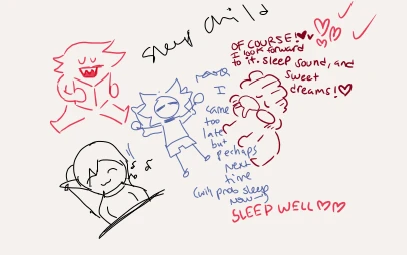 sleep child
OF COURSE!♥♥
I look forward
to it. sleep sound, and
sweet
dreams!♡
I
came
too
late
but
perhaps
next
time
(will prob sleep
now)
SLEEP WELL♡♡